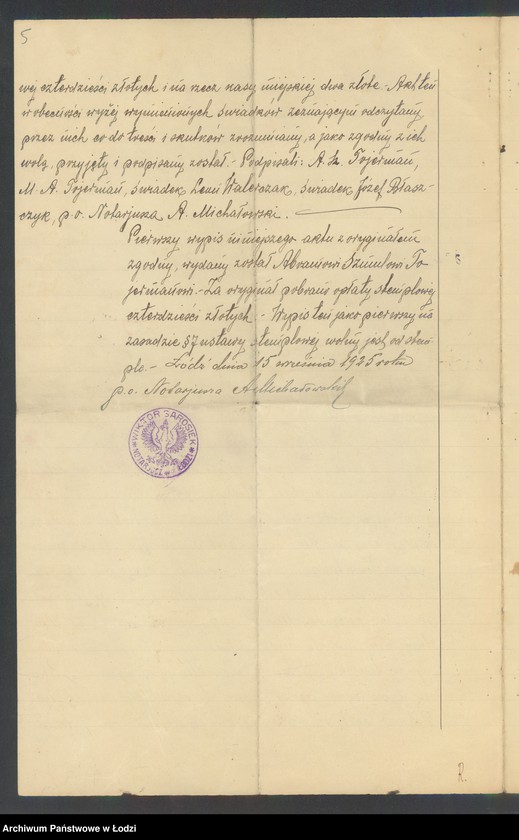 5
wej czterdzieści złotych i na rzecz kasy miejskiej dwa złote. Akt ten
w obecności wyżej wymienionych świadków zeznającym odczytany,
przez nich co do treści i skutków zrozumiany, a jako zgodny z ich
wolą, przyjęty i podpisany został. - Podpisali: A. Sz. Fojerman,
M. A. Fojerman, świadek Leon Walerczak, świadek Józef Błasz-
czyk, p.o. Notarjusza A. Michałowski.
Pierwszy wypis niniejszego aktu z oryginałem
zgodny, wydany został Abramowi Szmulowi Fo-
jermanowi. - Za oryginał pobrano opłaty stemplowej
czterdzieści złotych. - Wypis ten jako pierwszy na
zasadzie § 7 ustawy stemplowej wolny jest od stem-
pla. - Łódź dnia 15 września 1925 roku
p.o. Notarjusza A. Michałowski
WIKTOR SAROSIEK
NOTARJUSZ W ŁODZI
R.
Archiwum Państwowe w Łodzi